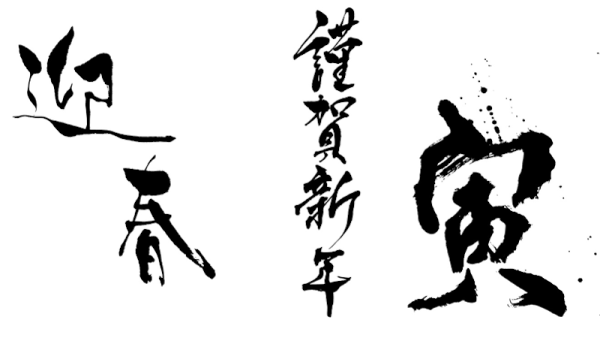 迎春
謹賀新年
寅